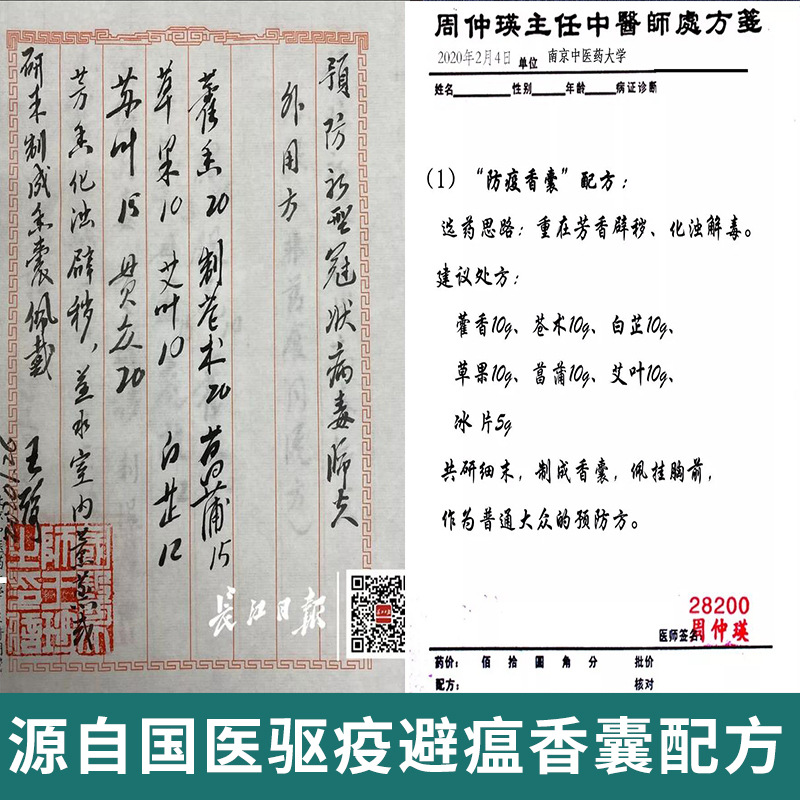 預防新型冠状病毒肺炎
外用方
藿香20 制苍术20 菖蒲15
草果10 艾叶10 白芷12
苏叶15 贯众20
芳香化浊辟秽，煎水室内薰蒸或
研末制成香囊佩戴
2020.01.26
长江日报
周仲瑛主任中醫師處方箋
2020年2月4日 单位 南京中医药大学
姓名 性别 年龄 病证诊断
(1) “防疫香囊”配方：
选药思路：重在芳香辟秽、化浊解毒。
建议处方：
藿香10g、苍术10g、白芷10g、
草果10g、菖蒲10g、艾叶10g、
冰片5g
共研细末，制成香囊，佩挂胸前，
作为普通大众的预防方。
28200
医师签名 周仲瑛
药价： 佰 拾 圆 角 分 批价
配方： 核对
源自国医驱疫避瘟香囊配方